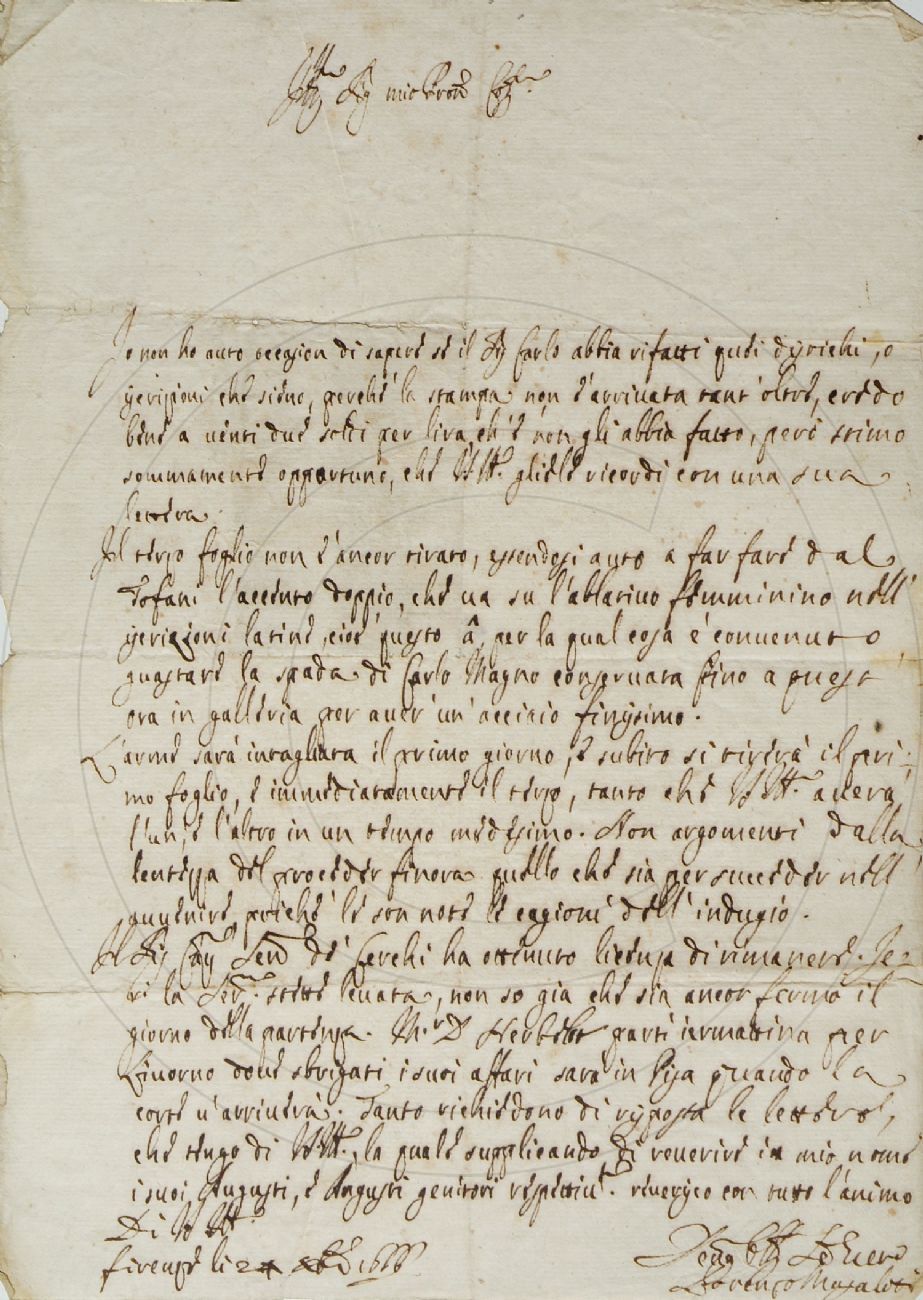 Ill.mo Sig.r mio Pron. Col.mo
Io non ho auto occasion di sapere se il Sig. Carlo abbia rifatti quei distichi, o
iscrizioni che sieno, perché la stampa non è arrivata tant'oltre, credo
bene a venti due soldi per lira, ch'e' non gli abbia fatto, però stimo
sommamente opportuno, che V.S. Ill.ma gliele ricordi con una sua
lettera.
Il terzo foglio non è ancor tirato, essendosi auto a far fare dal
Tofani l'accento doppio, che va su l'ablativo femminino nell'
iscrizioni latine, cioè questo â, per la qual cosa è convenuto
guastare la spada di Carlo Magno conservata fino a quest'
ora in galleria per aver un'acciaio finissimo.
L'arme sarà intagliata il primo giorno, e subito si tirerà il pri-
mo foglio, e immediatamente il terzo, tanto che V.S. Ill.ma averà
l'un, e l'altro in un tempo medesimo. Non argomenti dalla
lentezza del proceder finora quello che sia per succeder nell'
avvenire, poiché le son note le cagioni dell'indugio.
Il Sig. Cav. de' Cerchi ha ottenuto licenza di rimanere. Ie-
ri la Ser.ma stette levata, non so già che sia ancor fermo il
giorno della partenza. M.r D. Herbelot partì iermattina per
Livorno dove sbrigati i suoi affari sarà in Pisa quando la
corte v'arriverà. Tanto richiedono di risposta le lettere,
che tengo di V.S. Ill.ma, la quale supplicando di reverire in mio nome
i suoi Augusti, e Angusti genitori respettiv.e riverisco con tutto l'animo
Di V.S. Ill.ma
Firenze li 1666
Lorenzo Magalotti